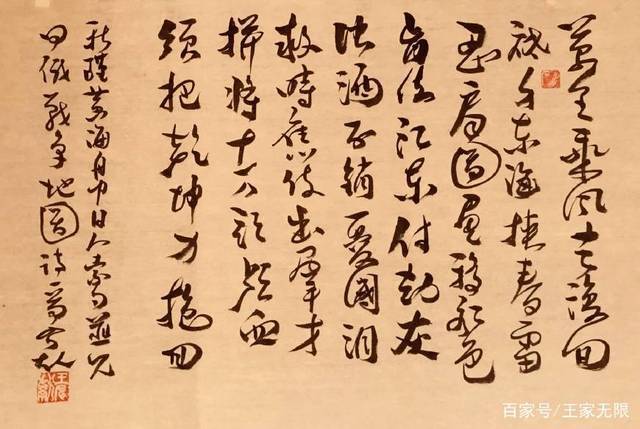 萬里乘風去復回
祗身東海挟春雷
忍看圖畫移顏色
肯使江東付劫灰
浊酒不銷憂國泪
救時應仗出群才
拼將十万頭顱血
須把乾坤力挽回
秋瑾黄海舟中日人索句並見
日俄戰爭地圖詩一首
百家号/王家无限